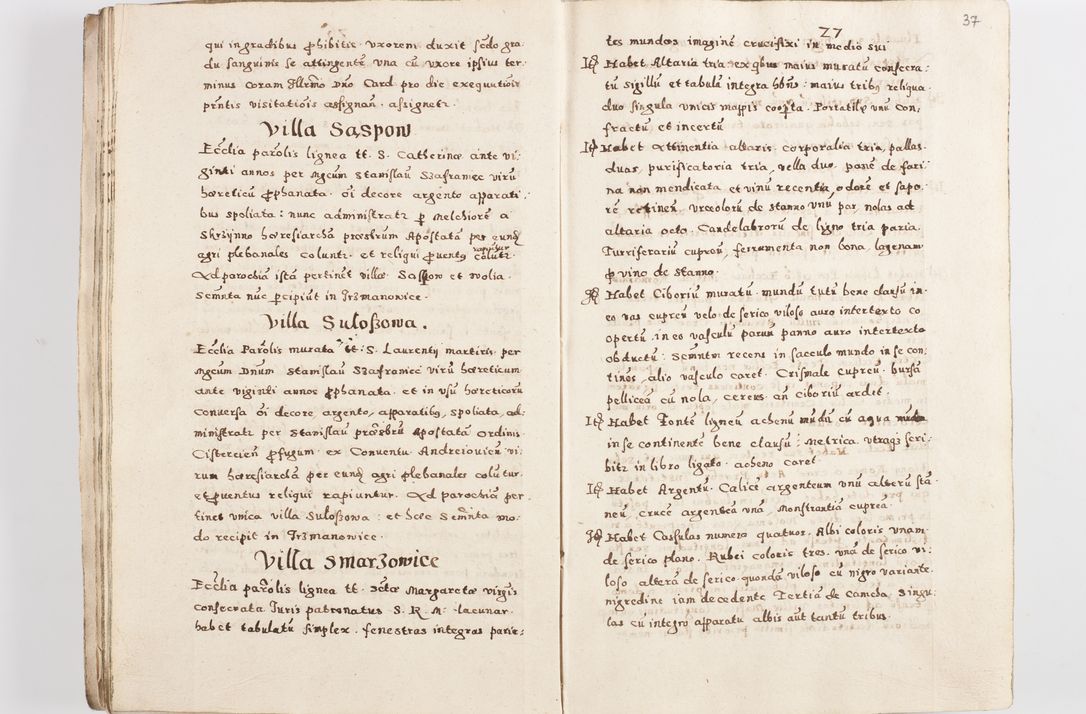 qui in gradibus ꝓhibitis uxorem duxit sc̃do gra:
du sanguinis se attingentẽ una cũ uxore ipsius ter:
minus coram Illr̃mo Dño Card. pro die exequutiõis
prñtis visitatiõis assignañ. assignetr.
Villa Sąspow
Eccl̃ia parõlis lignea tt. S. Catherinæ ante vi:
ginti annos per Mgcum Stanislaũ Szafraniec virũ
hæreticũ ꝓphanata. õi decore argento apparati:
bus spoliata: nunc administratr ꝑ Melchiorẽ a
Skrzynno hæresiarchã præsbrum Apostatã per eundẽ
agri plebanales coluntr. et reliqui ꝓventus rapiuntur colũtr.
Ad parochiã istã pertinẽt villæ. Sasspow et Wolia.
Semnta nũc ꝑcipiũt in Jrzmanowice.
Villa Suloßowa.
Eccl̃ia Parõlis murata tt. S. Laurentij martiris per
Mgcum Dnum Stanislaũ Szafraniec virũ hæreticum
ante viginti annos ꝓphanata. et in usũ hæreticorũ
conversa õi decore, argento, apparatibɜ, spoliata, ad:
ministratr per Stanislaũ præsbrũ Apostatã ordinis
Cistercieñ ꝓfugum. ex Conventu Andreiovieñ vi:
rum hæresiarchã per eundẽ agri plebanales colũtur.
et ꝓventus reliqui rapiuntur. Ad parochiã per
tinet unica villa Suloßowa: et hæc Semñta mo:
do recipit in Jrzmanowice.
Villa Smarzowice
Eccl̃ia parõlis lignea tt. Sctæ Margaretæ virgis
consecrata Juris patronatus S. R. M. lacunar.
habet tabulatũ simplex. fenestras integras parie:
37
27
tes mundos imaginẽ crucifixi in medio sui
Itẽ Habet Altaria tria. ex qbus maius muratũ consecra:
tũ sigillũ et tabulã integrã hñs: maius tribɜ reliqua.
duo singula unicis mappis cooꝑta. Portatile unũ con:
fractũ et incertũ
Itẽ Habet Attinentia altaris. corporalia tria, pallas.
duas. purificatoria tria, vella duo. panẽ de fari:
na non mendicata et vinũ recentiã, odorẽ et sapo:
rẽ retinen. Urceolorũ de stanno unũ par, nolas ad
altaria octo. Candelabrorũ de ligno tria paria.
Turriferariũ cupreũ, ferramenta non bona, lagenam
ꝓ vino de stanno.
Itẽ Habet Ciboriũ muratũ. mundũ tutũ bene clausũ in:
eo vas cupreũ velo de serico viloso auro intertexto co
opertũ. in eo vasculũ parvũ panno auro intertexto
obductũ. Semntm recens in sacculo mundo in se con:
tineñs, alio vasculo caret. Crismale cupreũ. bursã
pelliceã cũ nola, cereus añ ciboriũ ardet.
Itẽ Habet Fontẽ ligneũ achenũ mũdũ cũ aqua munda
in se continentẽ bene clausũ: Metrica utraqɜ scri:
bitr in libro ligato. acheno caret
Itẽ Habet Argentũ. Calicẽ argenteum unũ alterũ stã:
neũ, crucẽ argenteã unã, Monstrantiã cupreã.
Itẽ Habet Cassulas numero quatuor. Albi coloris unam.
de serico plano. Rubei coloris tres. unã de serico vi:
loso alterã de serico. quondã viloso cũ nigro variante.
nigredine iam decedente Tertiã de camcha singu:
las cũ integro apparatu albis aũt tantũ tribus.